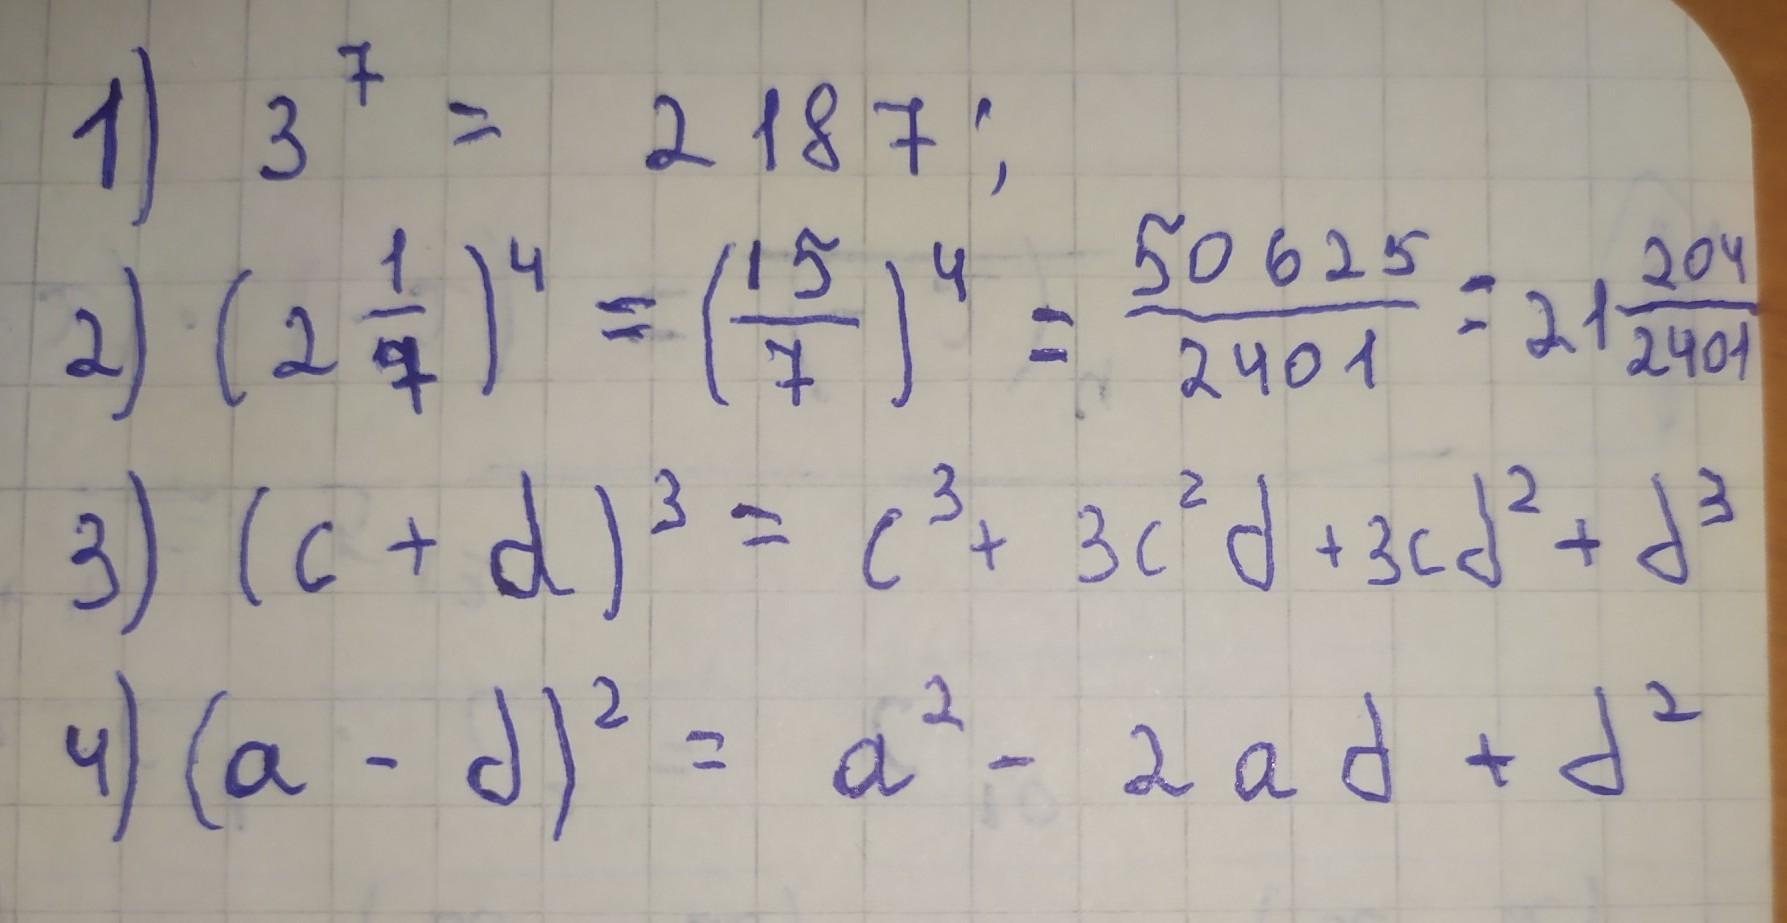 1) 3^7 = 2187;
2) (2 1/7)^4 = (15/7)^4 = 50625/2401 = 21 204/2401
3) (c + d)^3 = c^3 + 3c^2d + 3cd^2 + d^3
4) (a - d)^2 = a^2 - 2ad + d^2